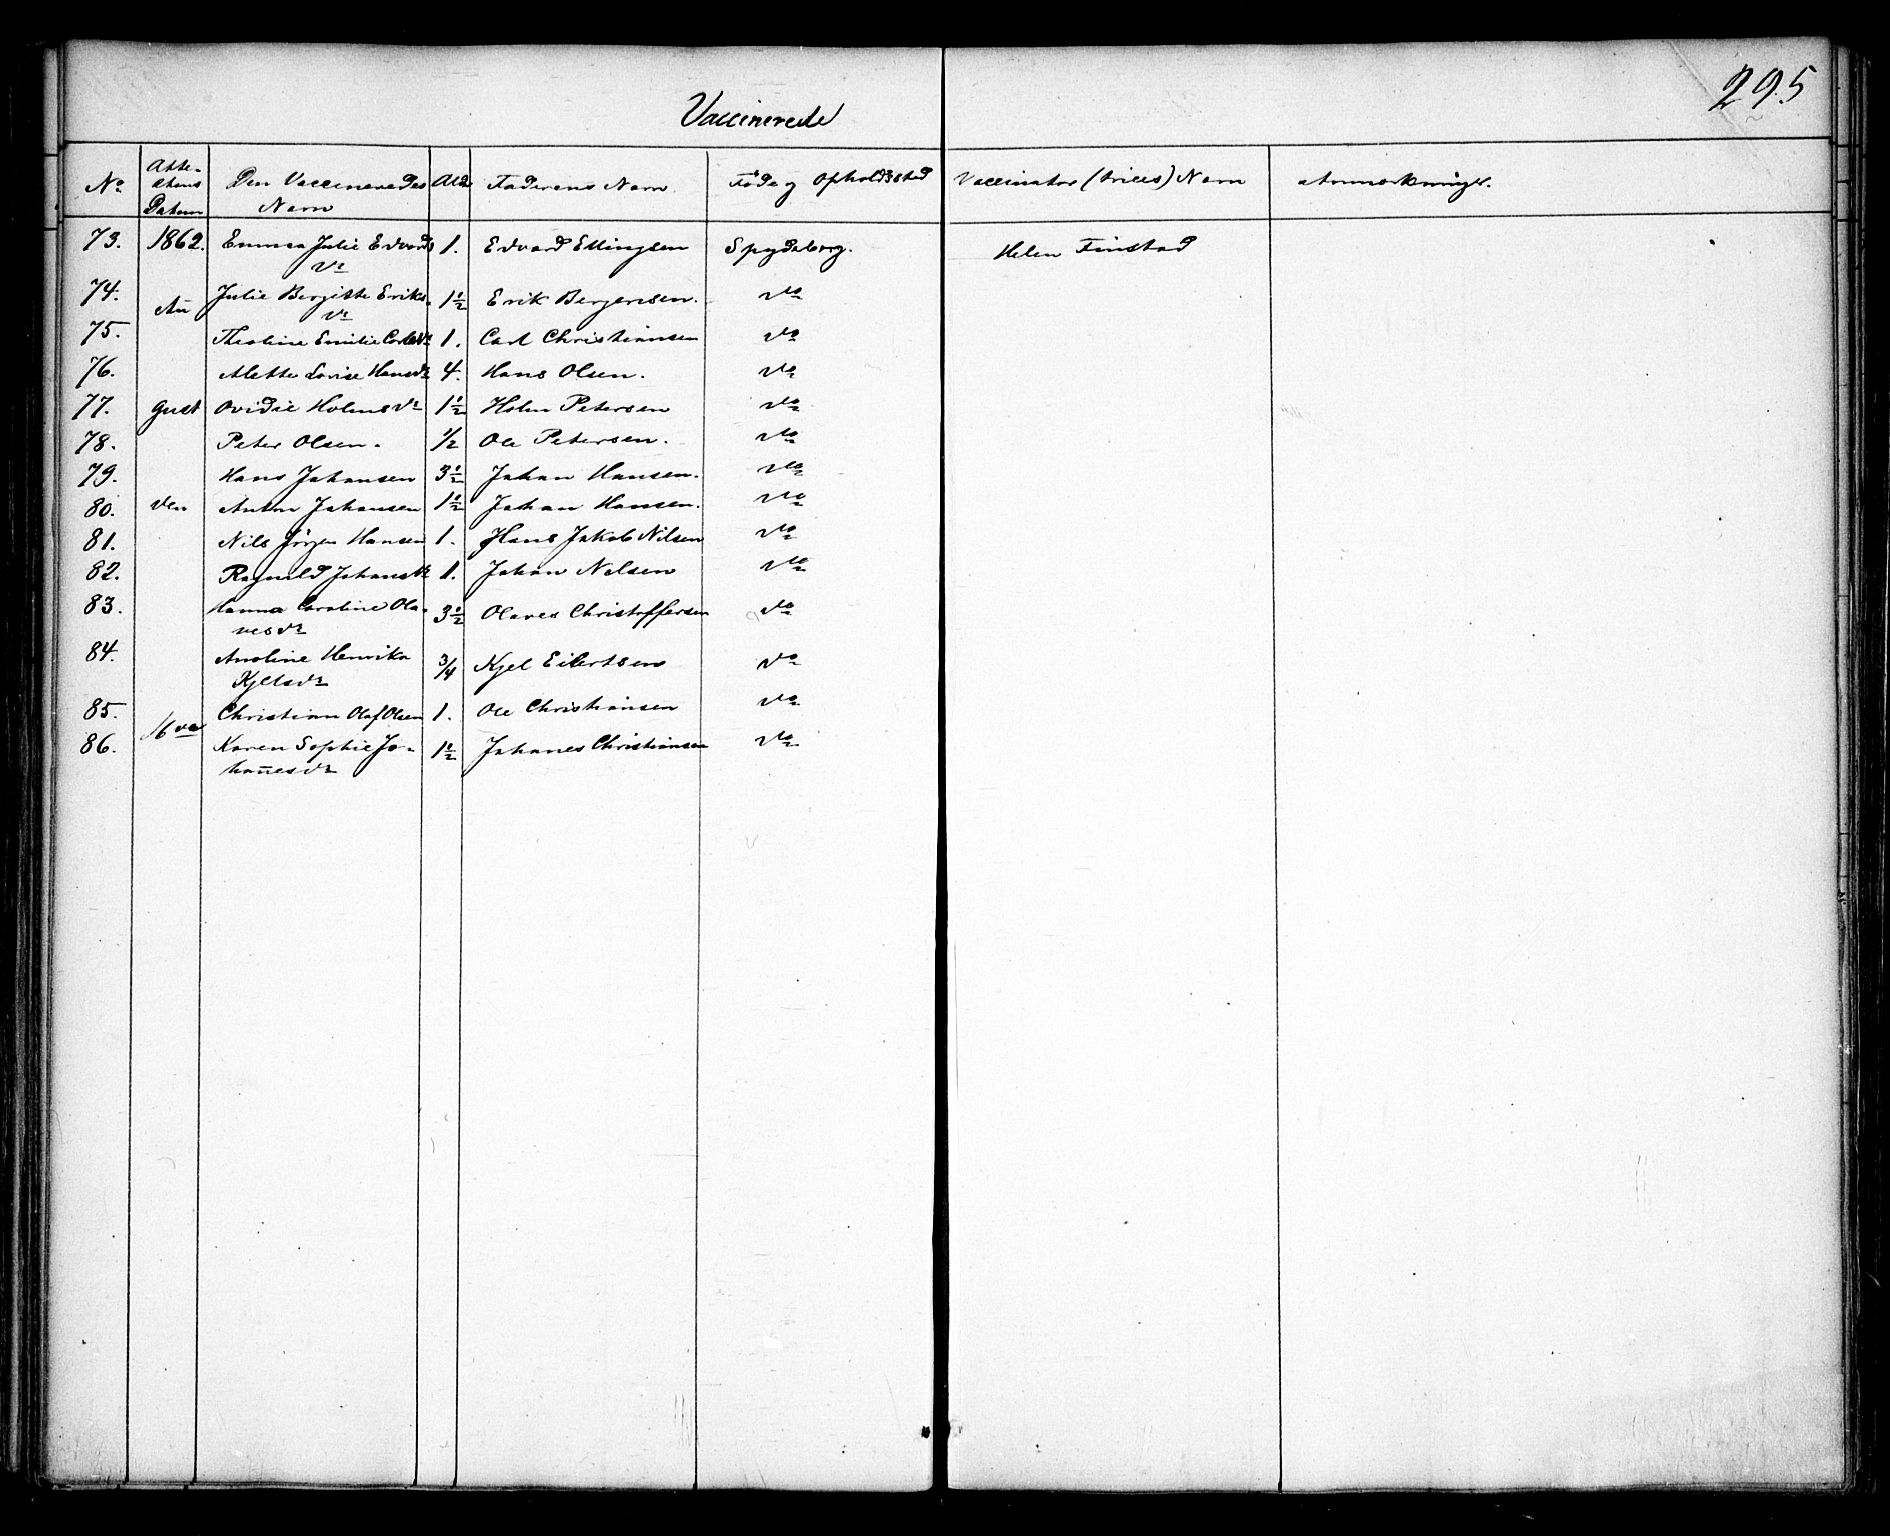 295
Vaccinerede
No Atte- stens Datum Den Vaccineredes Navn Ald Faderens Navn Føde og Opholdssted Vaccinator (trices) Navn Anmærkninger.
73. 1862. Emma Julie Edvards Dr 1. Edvard Ellingsen Spydeberg. Helen Finstad
74. Au Julie Bergitte Eriks- Dr 1½ Erik Bergersen. do
75. Theoline Emilie Carlsdr 1. Carl Christiansen do
76. Mette Lovise Hansdr 4. Hans Olsen. do
77. gust Ovidie Holmsdr 1½ Holm Petersen do
78. Peter Olsen. ½ Ole Petersen. do
79. Hans Johansen 3½ Johan Hansen. do
80. den Anton Johansen 1½ Johan Hansen. do
81. Nils Jörgen Hansen 1. Hans Jakob Nilsen do
82. Ragnild Johansdr 1. Johan Nelsen do
83. Hanna Caroline Ola- vesdr 3½ Olaves Christoffersen do
84. Anoline Henrika Kjelsdr 3/4 Kjel Eilertsen do
85. Christian Olaf Olsen 1. Ole Christiansen do
86. 16de Karen Sophie Jo- hañesdr 1½ Johanes Christiansen do